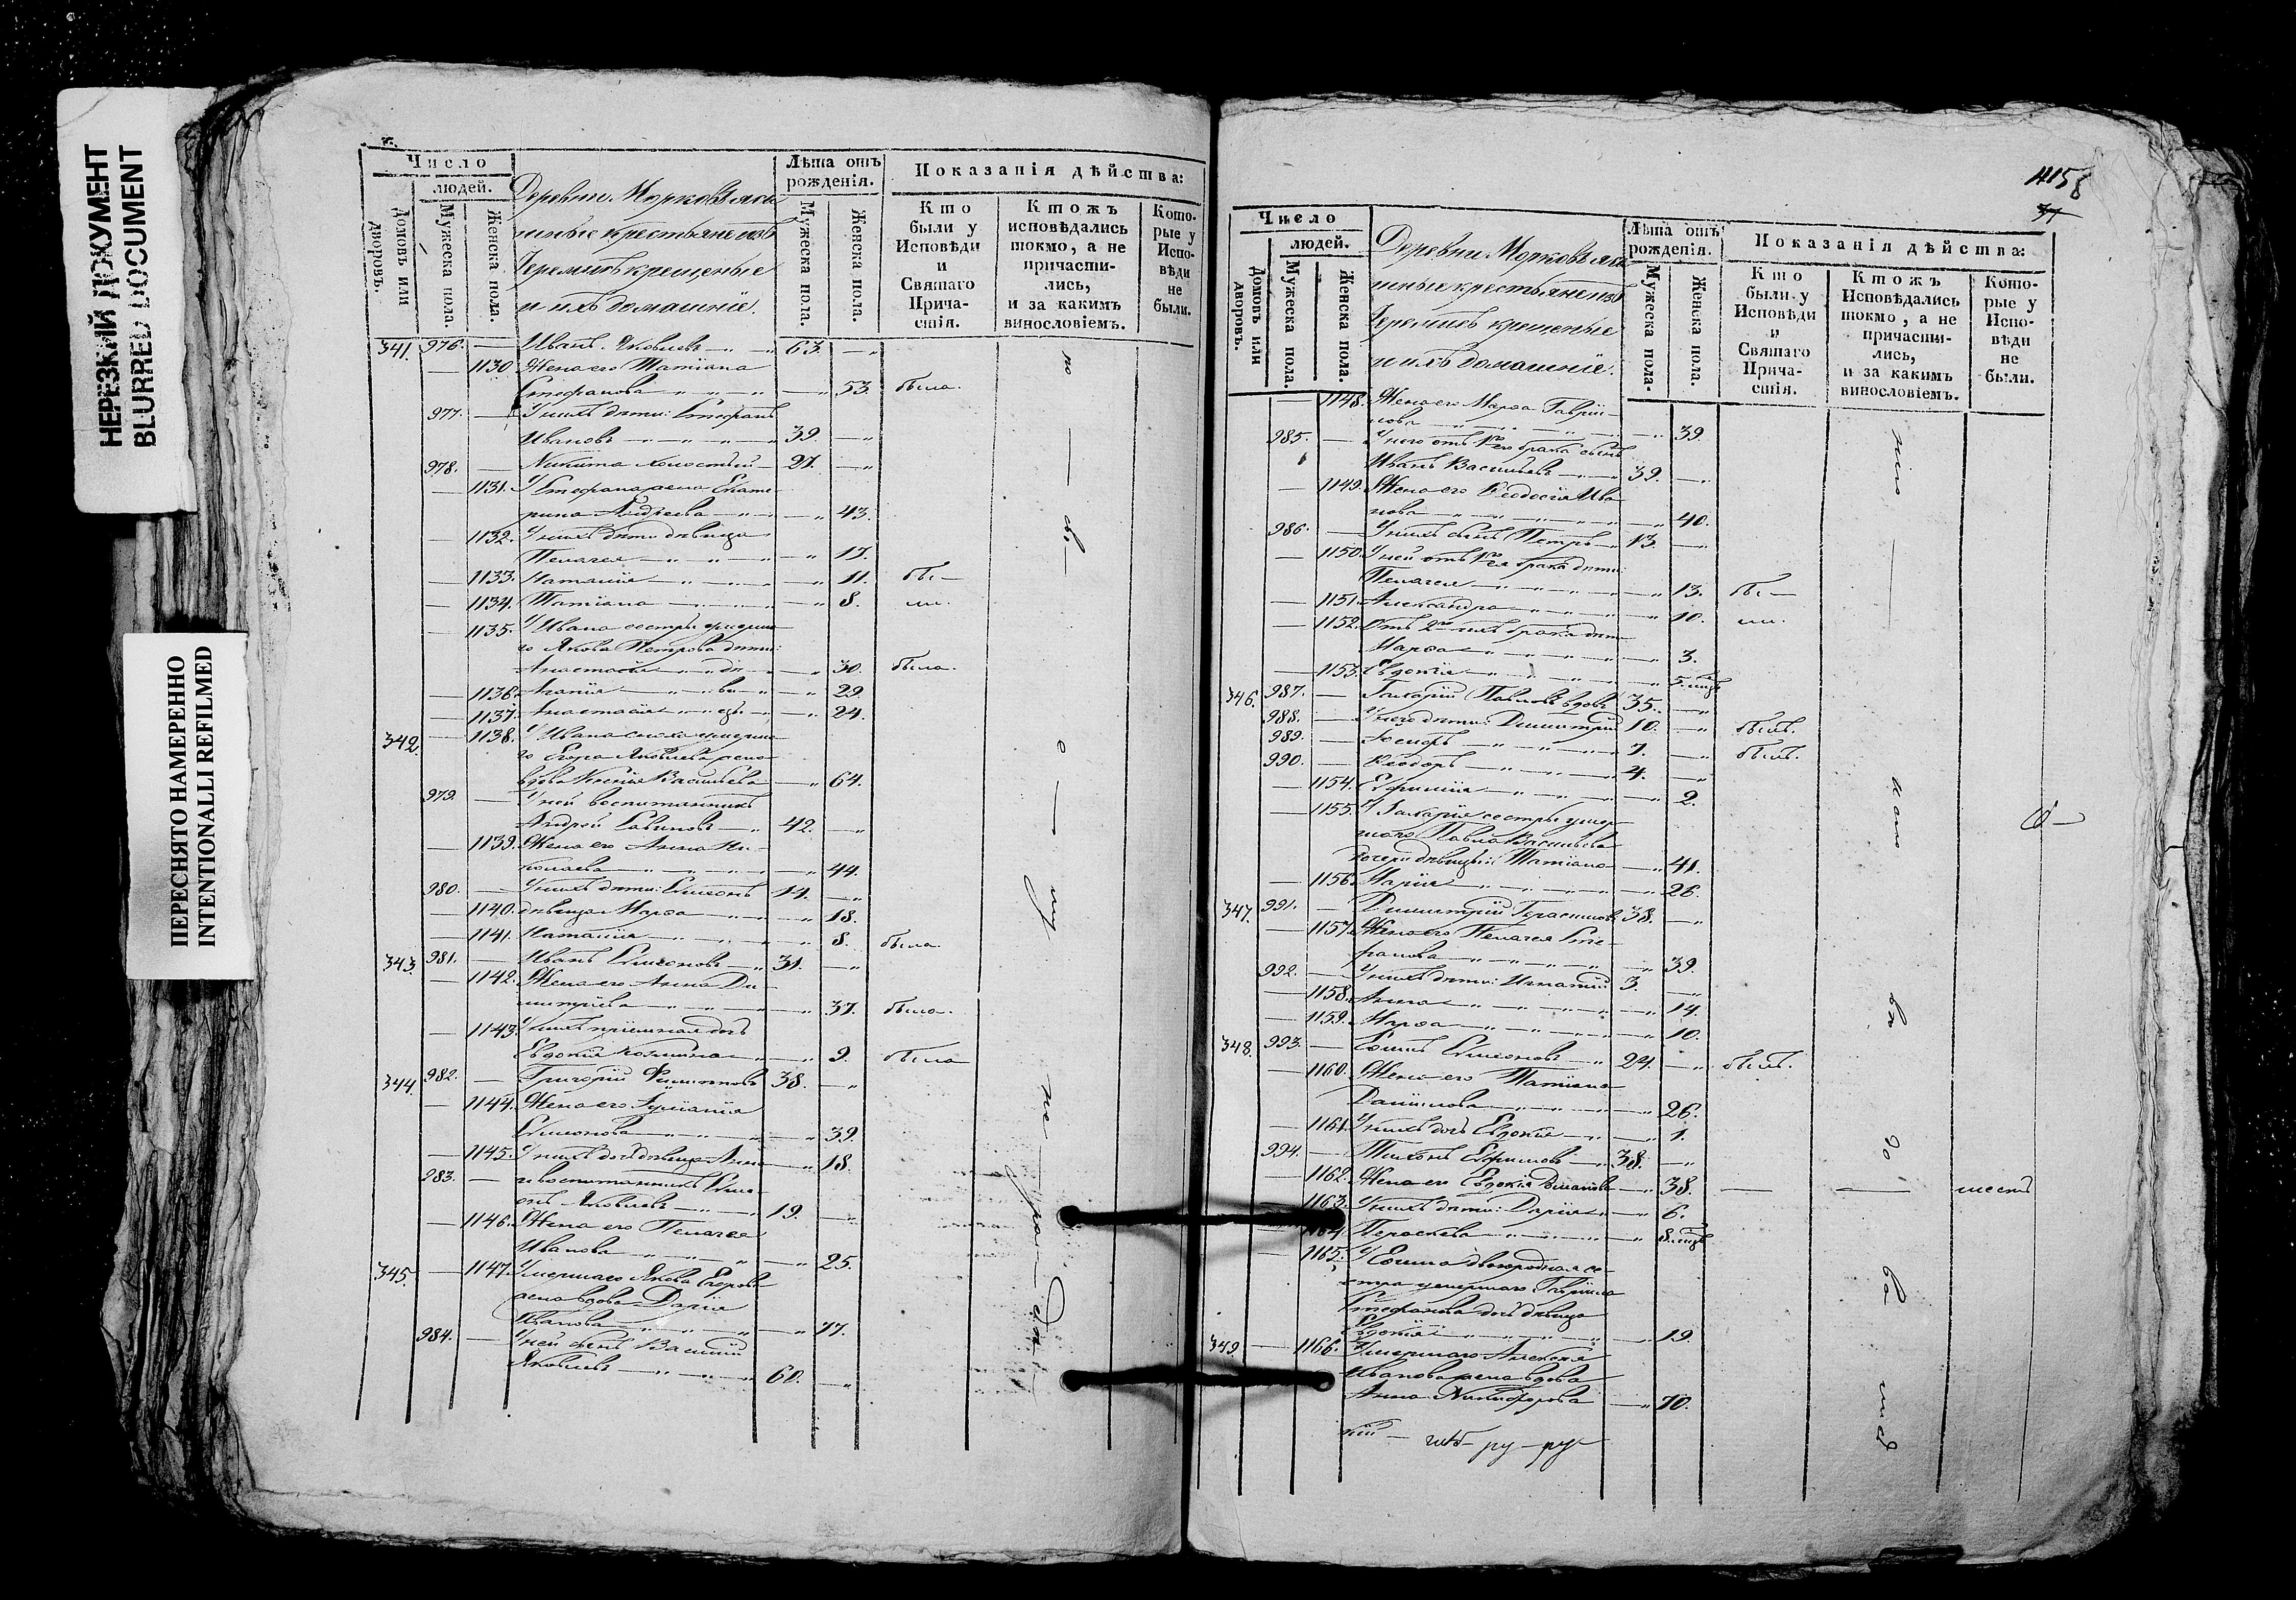 НЕРЕЗКИЙ ДОКУМЕНТ
BLURRED DOCUMENT
ПЕРЕСНЯТО НАМЕРЕННО
INTENTIONALLI REFILMED
Число
людей.
Домовъ или дворовъ.
Мужеска пола.
Женска пола.
Деревни Морковъ яса
шные крестьяне изъ
Черемисъ крещеные
и ихъ домашніе.
Лѣта отъ рожденія.
Мужеска пола.
Женска пола.
Показанія дѣйства:
Кто были у Исповѣди и Святаго Прича-стія.
Ктожъ исповѣдались токмо, а не причасти-лись, и за какимъ винословіемъ.
Кото-рые у Испо-вѣди не были.
341. 976. — Иванъ Яковлевъ — 63. —
— 1130 Жена его Татіана
Стефанова — 53. была.
977. — У нихъ дѣти: Стефанъ
Ивановъ — 39. —
978. — Никита холостый — 27. —
— 1131. У Стефана жена Екате-
рина Андреева — 43.
— 1132. У нихъ дѣти дѣвица
Пелагея — 17.
— 1133. Наталія — 11. бы —
— 1134. Татіана — 8. ли.
— 1135. У Ивана сестры умерша
го Якова Петрова дѣти:
Анастасія — 30. была.
— 1136. Агапія — 29.
— 1137. Анастасія — 24.
342. — 1138. У Ивана сноха умерша
го Егора Яковлева жена
вдова Ксенія Васильева — 64.
979. — У ней воспитанникъ
Андрей Савиновъ — 42. —
— 1139. Жена его Анна Ни-
колаева — 44.
980. — У нихъ дѣти: Симеонъ 14. —
— 1140. дѣвица Марѳа — 18.
— 1141. Наталія — 8. была.
343. 981. — Иванъ Симеоновъ — 31. —
— 1142. Жена его Анна Ди-
митріева — 37. была.
— 1143. У нихъ пріемная дочь
Евдокія Козмина — 9. была
344. 982. — Григорій Филипповъ 38. —
— 1144. Жена его Іуліанія
Симеонова — 39.
— 1145. У нихъ дочь дѣвица Анна — 18.
983. — и воспитанникъ Симе-
онъ Яковлевъ — 19. —
— 1146. Жена его Пелагея
Иванова — 25.
345. — 1147. Умершаго Якова Егорова
жена вдова Дарія
Иванова — 77.
984. — У ней сынъ Василій
Яковлевъ — 60. —
по — сѣ — о — му — не — ра — дѣ —
1158
37
Число
людей.
Домовъ или дворовъ.
Мужеска пола.
Женска пола.
Деревни Морковъ яса
шные крестьяне изъ
Черемисъ крещеные
и ихъ домашніе.
Лѣта отъ рожденія.
Мужеска пола.
Женска пола.
Показанія дѣйства:
Кто были у Исповѣди и Святаго Прича-стія.
Ктожъ Исповѣдались токмо, а не причасти-лись, и за какимъ винословіемъ.
Кото-рые у Испо-вѣди не были.
— 1148. Жена его Марѳа Гаврии-
лова — 39.
985. — У него отъ 1го брака сынъ
Иванъ Васильевъ — 39. —
— 1149. Жена его Ѳеодосія Ива
нова — 40.
986. — У нихъ сынъ Петръ — 13. —
— 1150. У ней отъ 1го брака дѣти:
Пелагея — 13. бы —
— 1151. Александра — 10. ли.
— 1152. Отъ 2го ихъ брака дѣти
Марѳа — 3.
— 1153. Евдокія — 5. мцъ
346. 987. — Захарій Павловъ вдовъ 35. —
988. — У него дѣти: Димитрій 10. — былъ.
989. — Іосифъ — 7. — былъ.
990. — Ѳеодоръ — 4. —
— 1154. Евфимія — 2.
— 1155. У Захарія сестры умер
шаго Павла Васильева
дочери дѣвицы: Татіана — 41.
— 1156. Марія — 26.
347. 991. — Димитрій Герасимовъ 38. —
— 1157. Жена его Пелагея Сте-
фанова — 39.
992. — У нихъ дѣти: Игнатій 3. —
— 1158. Анна — 14.
— 1159. Марѳа — 10.
348. 993. — Симеоновъ — 24. — былъ.
— 1160. Жена его Татіана
Даніилова — 26.
— 1161. У нихъ дочь Евдокія — 1.
994. — Тихонъ Ефимовъ — 38. —
— 1162. Жена его Евдокія — 38. —
1163. У нихъ дѣти: Дарія — 6.
1164. Параскева — 8. мцъ
— 1165. У двоюродная се-
стра умершаго Гавриила
Стефанова дочь дѣвица
Евдокія — 19.
349. — 1166. Умершаго Алексея
Иванова жена вдова
Анна Никифорова — 70.